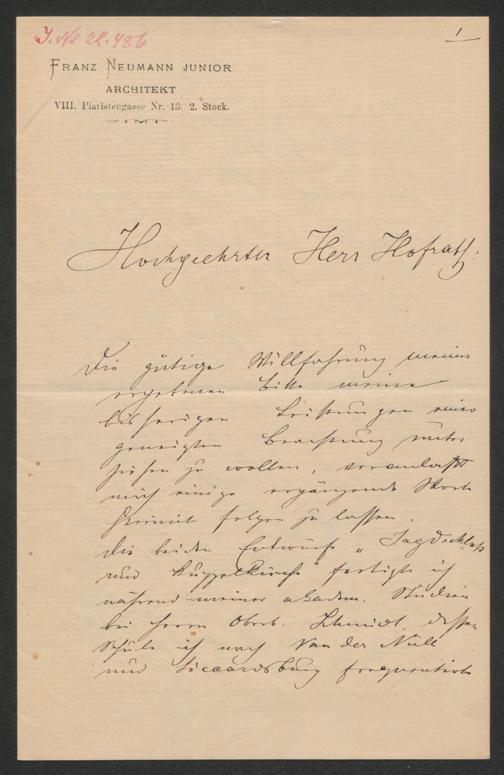 J. № 22.486
1
FRANZ NEUMANN JUNIOR
ARCHITEKT
VIII. Piaristengasse Nr. 13. 2. Stock.
Hochgeehrter Herr Hofrath!
Die gütige Willfahrung meiner
ergebenen Bitte meine
bisherigen Leistungen einer
geneigten Beachtung unter
ziehen zu wollen, veranlasst
mich einige ergänzende Worte
hiemit folgen zu lassen.
Die beiden Entwürfe „Jagdschloss
und Kuppelkirche“ fertigte ich
während meiner akadem. Studien
bei Herrn Oberb. Schmidt, dessen
Schule ich nach Van der Nüll
und Siccardsburg frequentirte